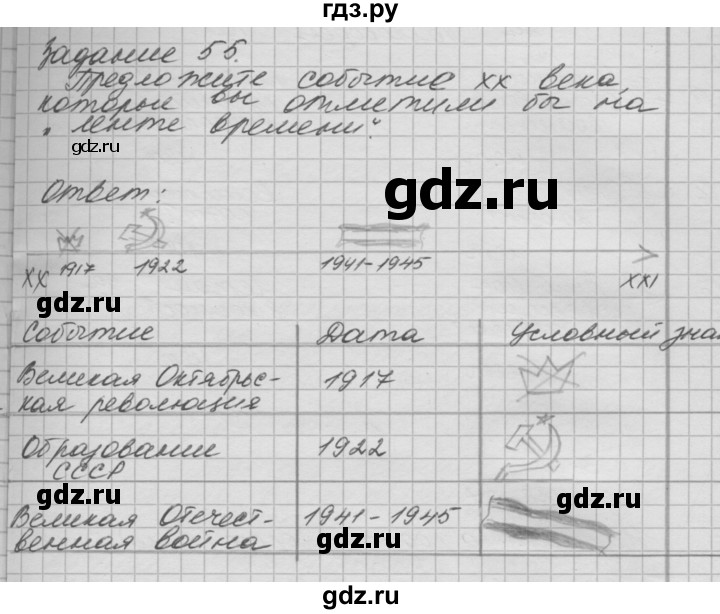 гдз.ру
Задание 55.
Предложите событие XX века,
которые вы отметили бы на
"ленте времени".
gdz.ru
Ответ:
gdz.ru
1917 1922 1941-1945
XX XXI
gdz.ru gdz.ru
Событие Дата Условный зна
Великая Октябрьс- 1917
кая революция
gdz.ru
Образование 1922
СССР
gdz.ru gdz.ru
Великая Отечест- 1941-1945
венная война
gdz.ru